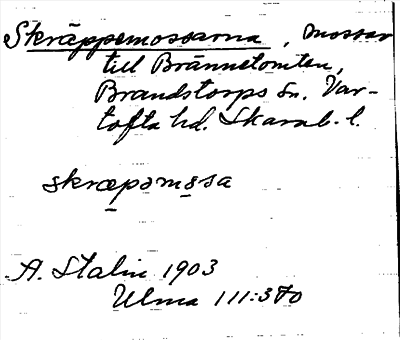 Skräppemossarna, mossar
till Brännetomten,
Brandstorps sn. Var-
tofta hd. Skarab. l.
skræpəmɵsa
A. Stalin 1903
Ulma 111:370